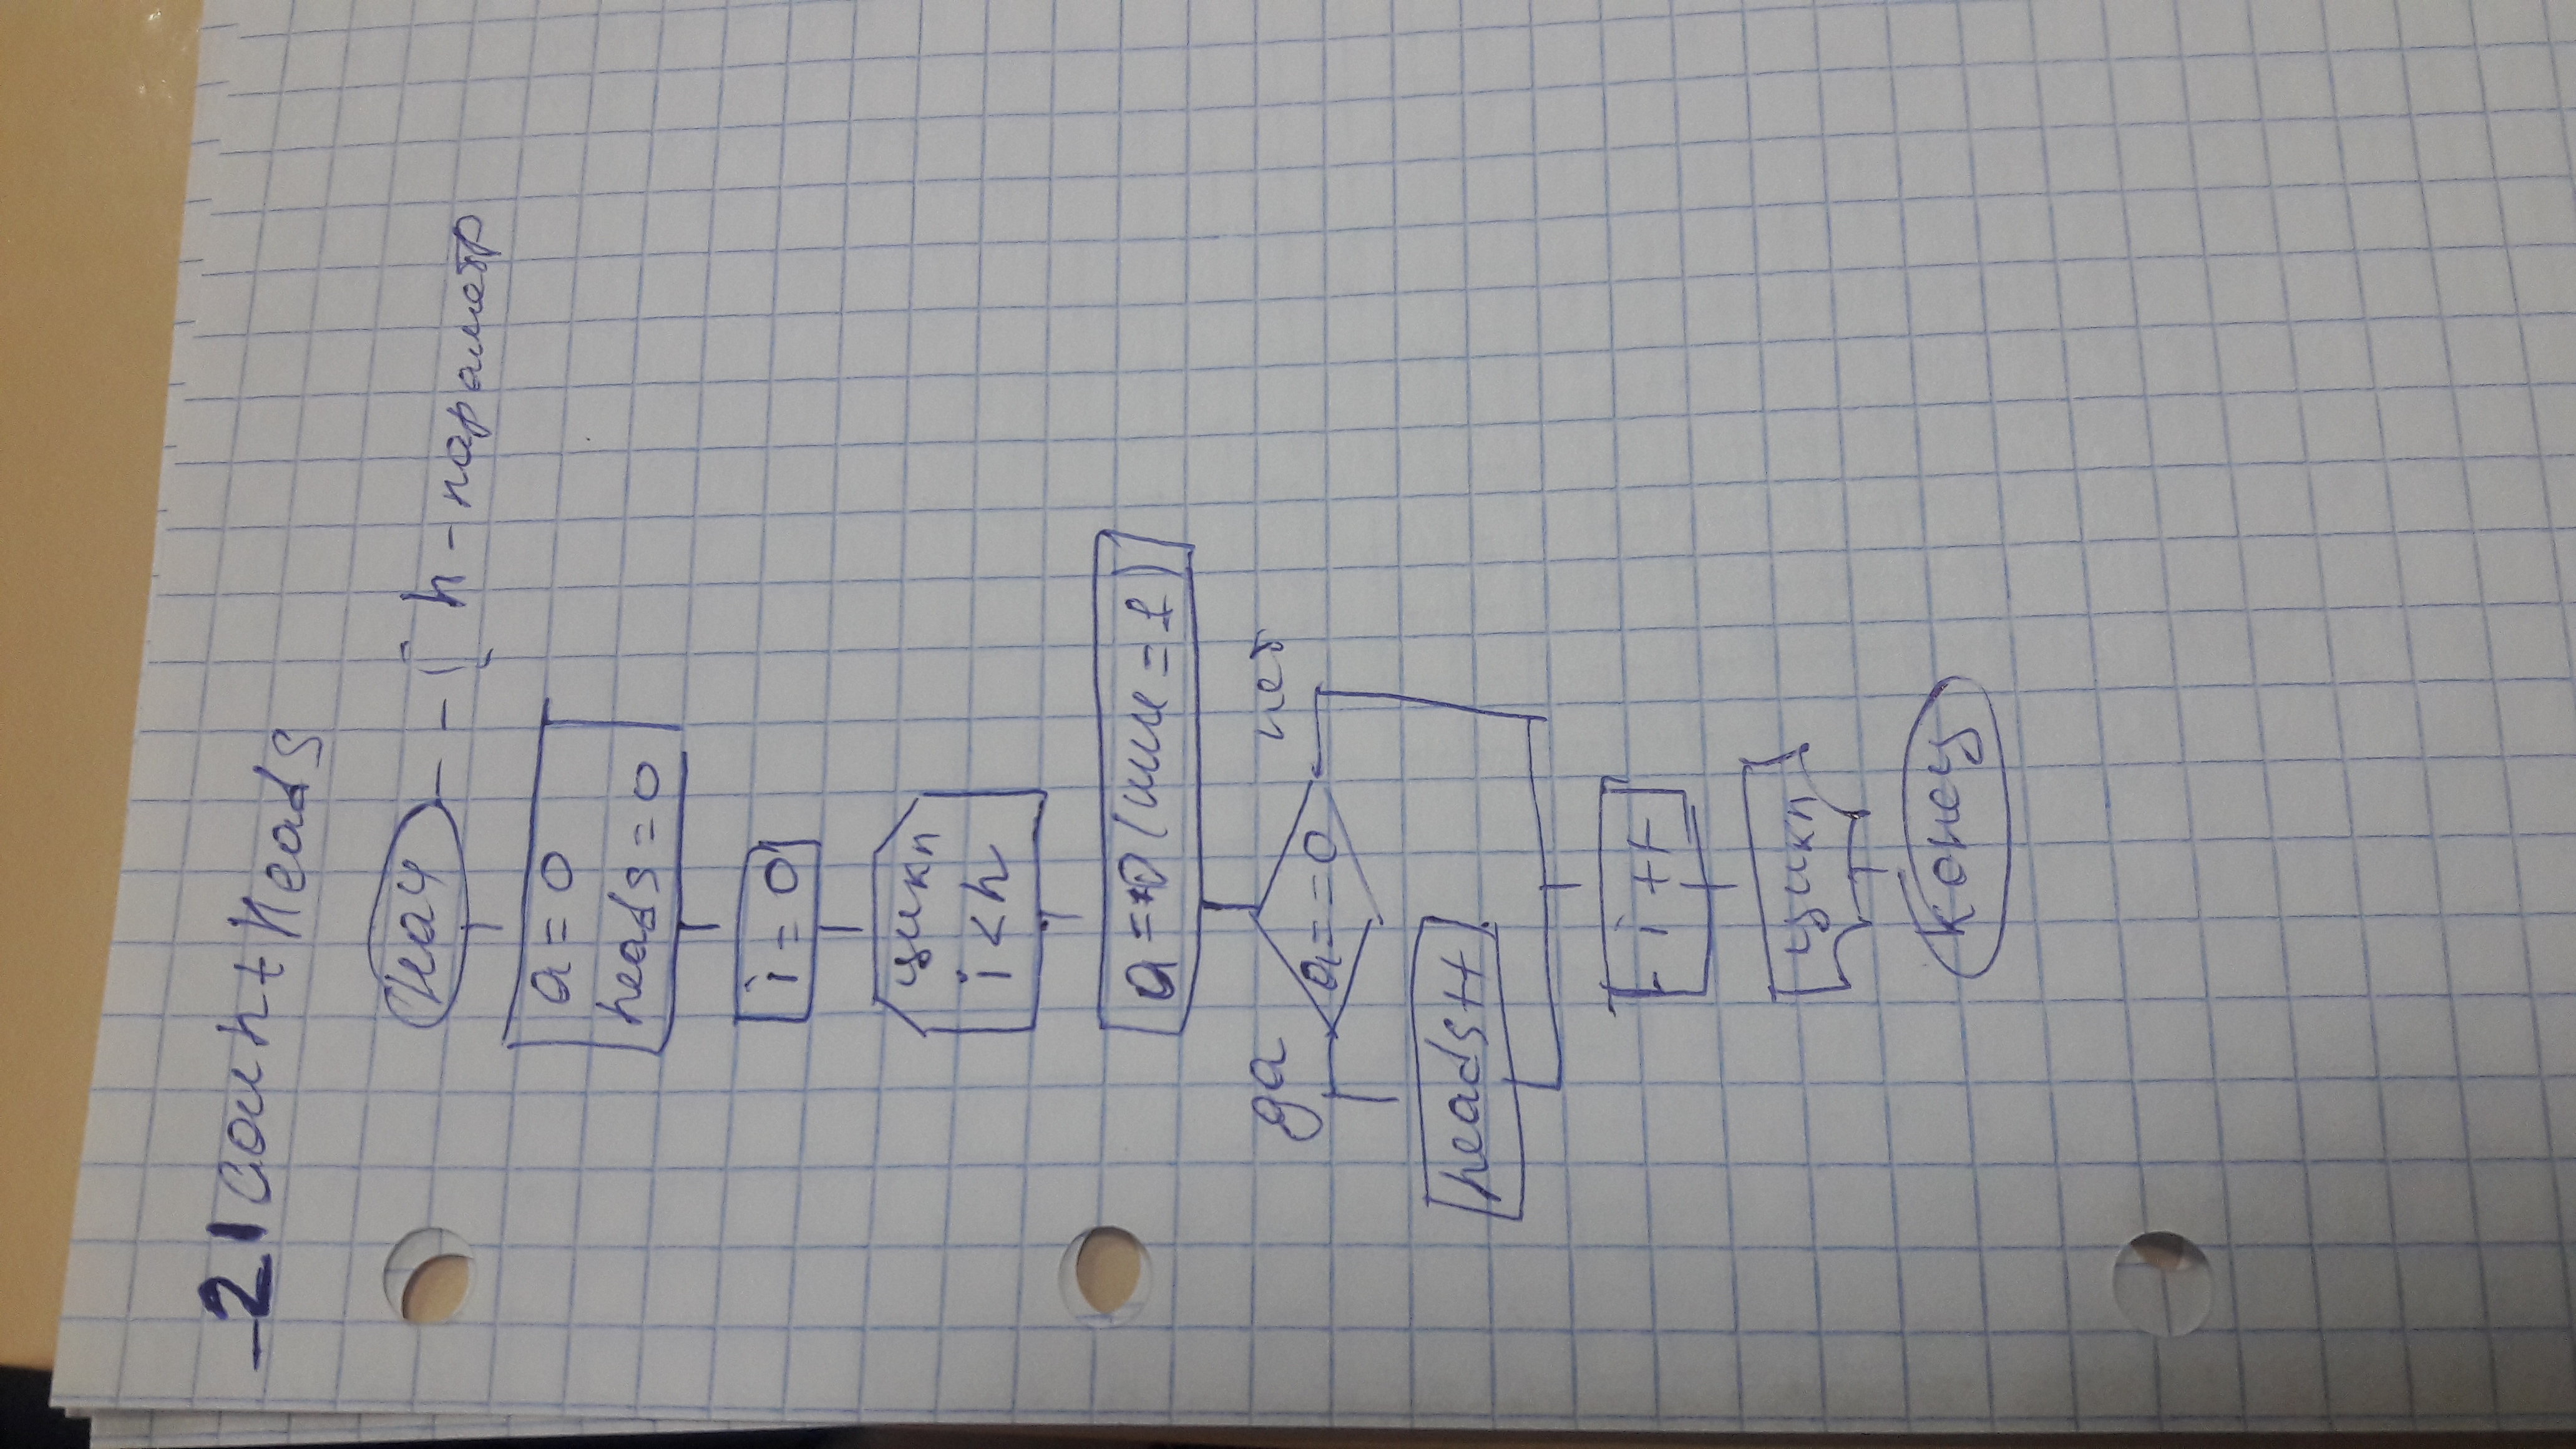 21 countHeads
нач
n - параметр
a = 0
heads = 0
i = 0
цикл
i < n
a = 0 (или = 1)
да
нет
a == 0
heads++
i ++
цикл
конец